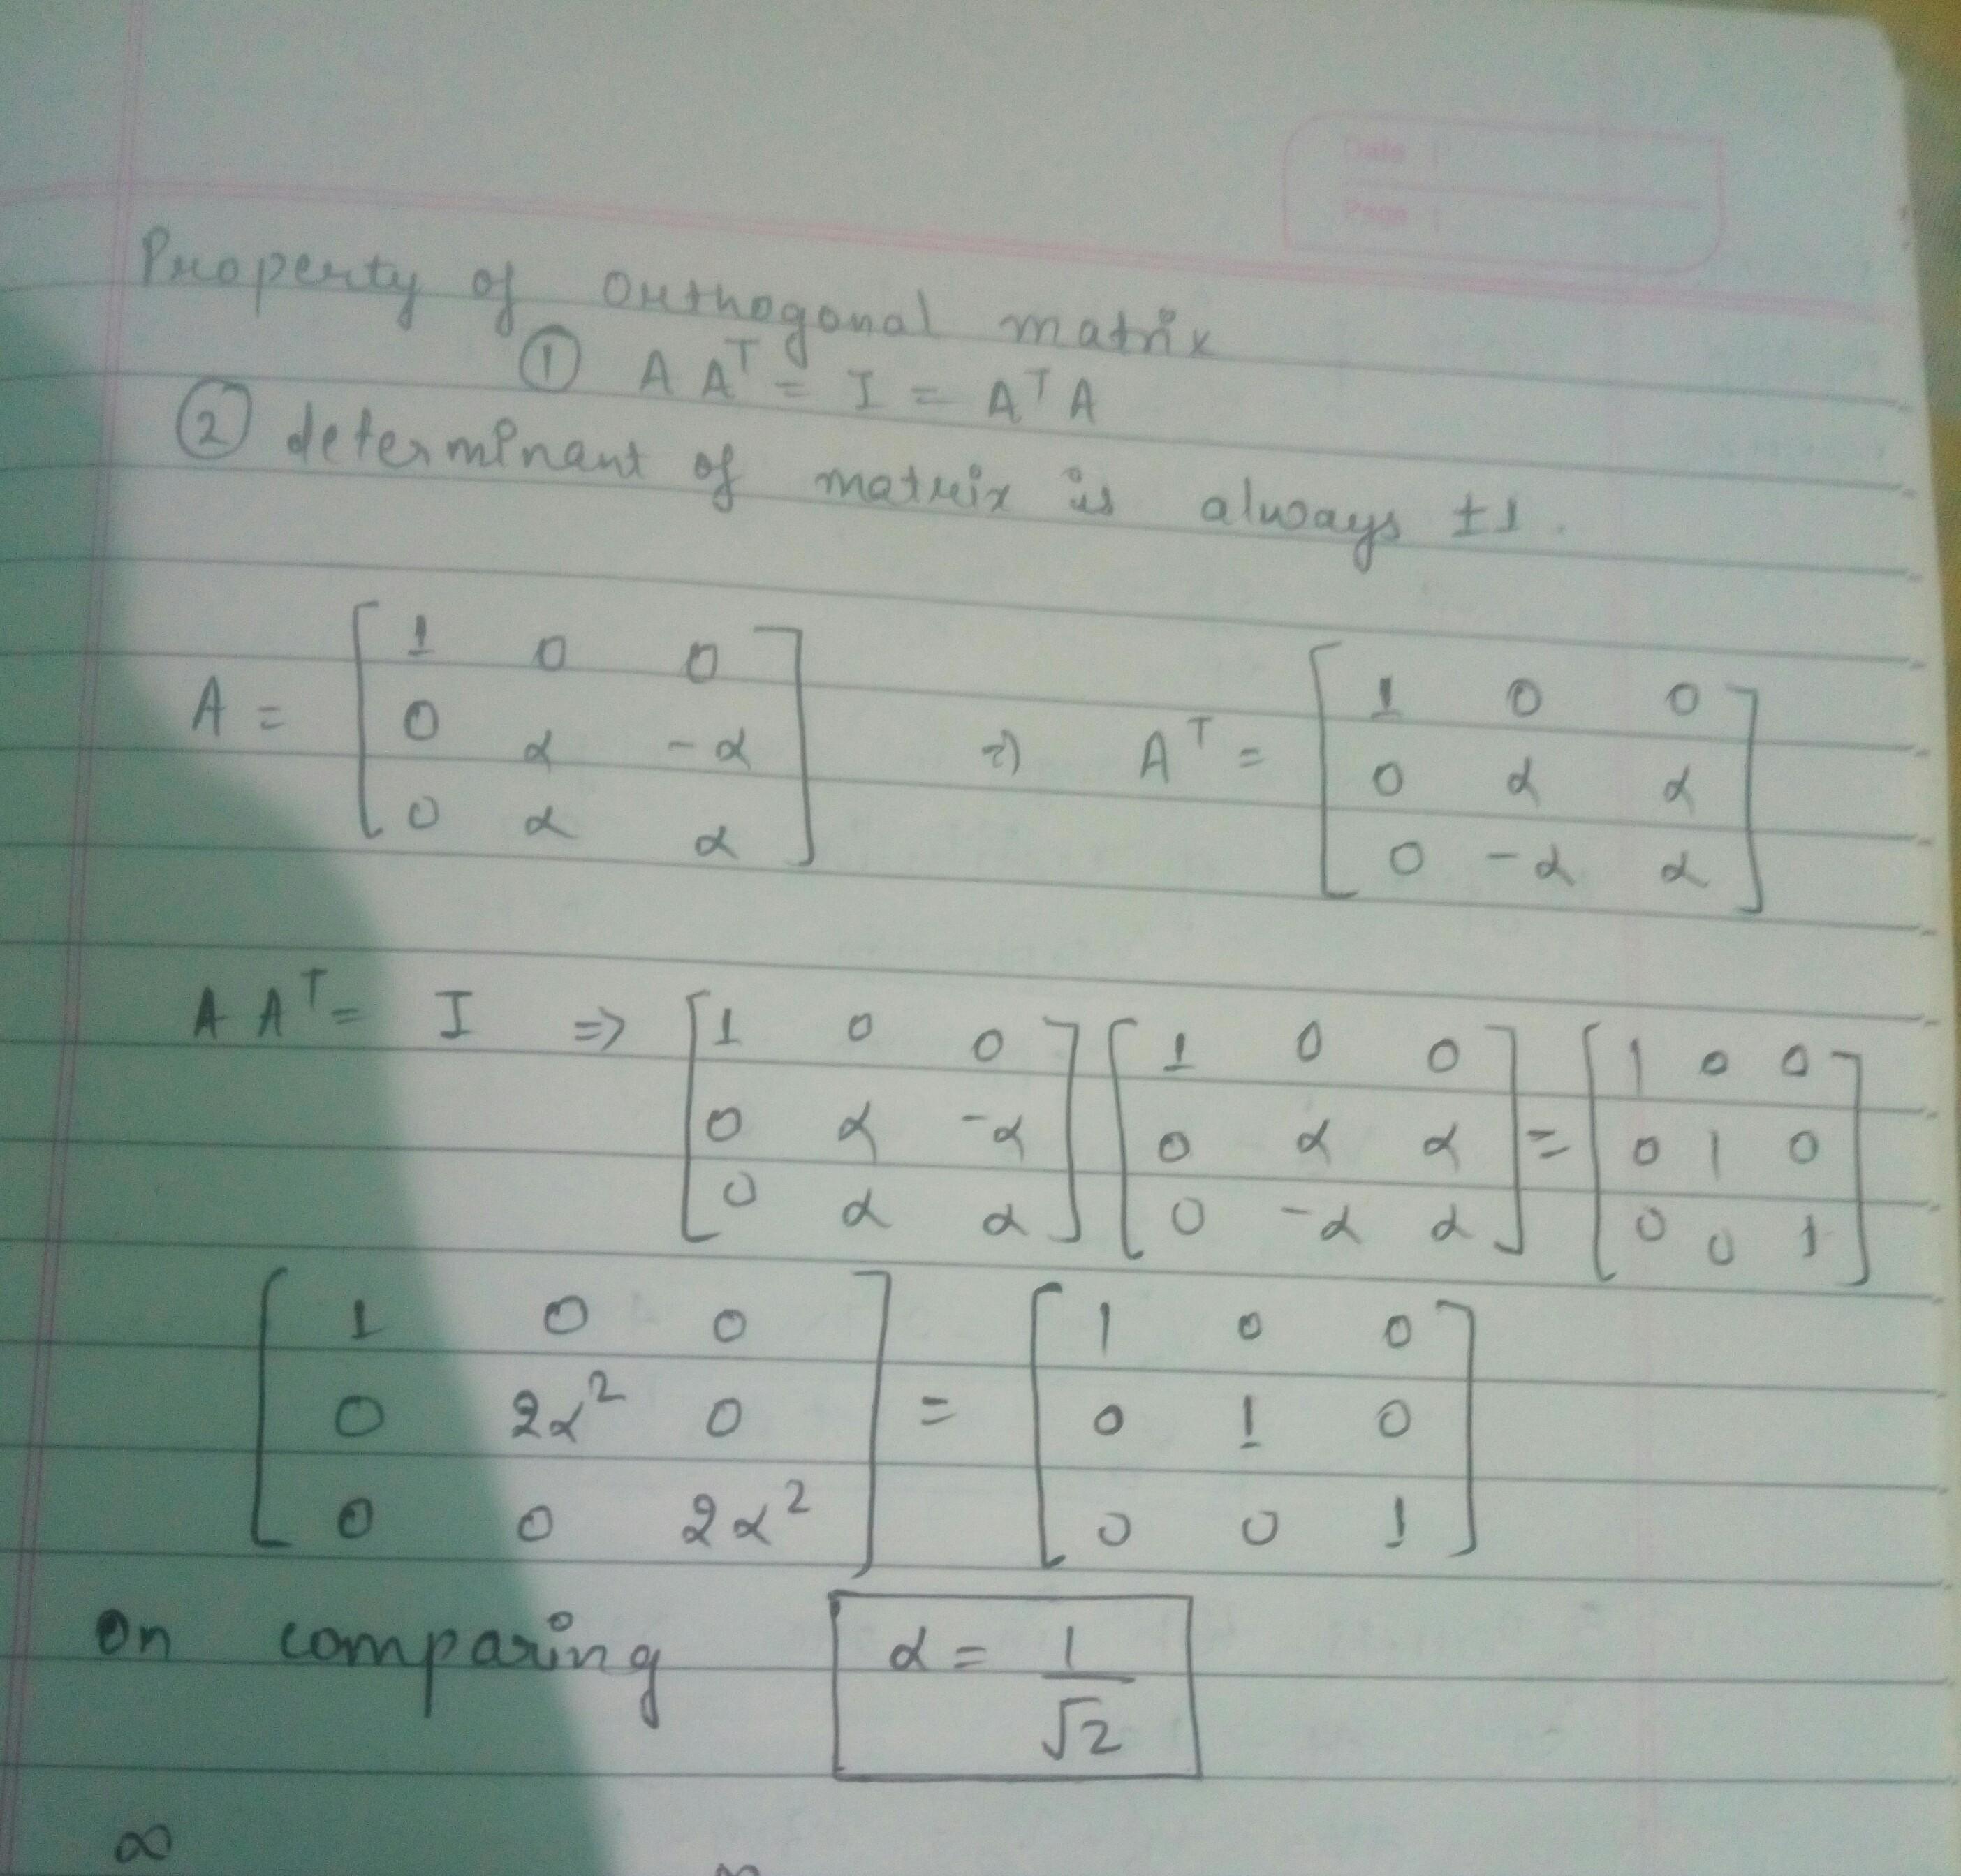 Date
Page
Property of Orthogonal matrix
① A Aᵀ = I = Aᵀ A
② determinant of matrix is always ±1.
A = [ 1 0 0 ; 0 α -α ; 0 α α ] ⇒ Aᵀ = [ 1 0 0 ; 0 α α ; 0 -α α ]
A Aᵀ = I ⇒ [ 1 0 0 ; 0 α -α ; 0 α α ] [ 1 0 0 ; 0 α α ; 0 -α α ] = [ 1 0 0 ; 0 1 0 ; 0 0 1 ]
[ 1 0 0 ; 0 2α² 0 ; 0 0 2α² ] = [ 1 0 0 ; 0 1 0 ; 0 0 1 ]
on comparing α = 1/√2
∞